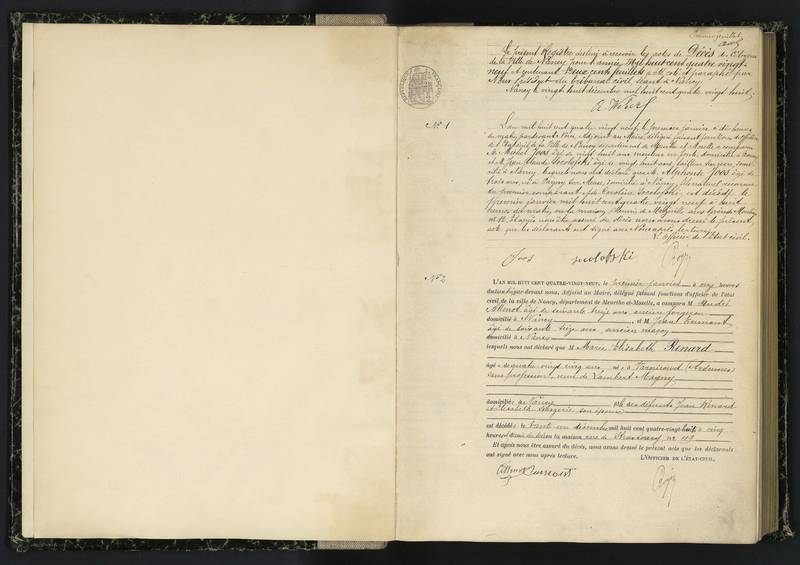 Premier feuillet
Le présent Registre destiné à recevoir les actes de Décès de
de la Ville de Nancy pour l'année Mil huit cent quatre vingt-
neuf et contenant Deux cents feuillets a été coté et paraphé par
Nous Président du tribunal civil, séant à Nancy.
Nancy le vingt huit décembre mil huit cent quatre vingt huit.
N° 1
L'an mil huit cent quatre vingt neuf, le premier janvier à dix heures
du matin pardevant Nous, Adjoint au Maire, délégué faisant fonctions d'officier
de l'Etat civil de la Ville de Nancy département de Meurthe et Moselle a comparu
M. Michel Joos âgé de vingt huit ans domicilié à
et M. Jean Claude Socolofski âgé de vingt huit ans, tailleur
à Nancy, lesquels nous ont déclaré que M. Alphonse Joos âgé de
trois ans, né à Pagny sur Meuse, domicilié à Nancy, fils naturel reconnu
du premier comparant et de Caroline Socolofski est décédé le
premier janvier mil huit cent quatre vingt neuf à huit
heures du matin en la maison
n° 12. Et après nous être assuré du décès nous avons dressé le présent
acte que les déclarants ont signé avec Nous après lecture.
L'officier de l'Etat civil.
Joos
N° 2
L'AN MIL HUIT CENT QUATRE-VINGT-NEUF, le premier janvier à onze heures
du matin par-devant nous, Adjoint au Maire, délégué faisant fonctions d'officier de l'état
civil de la ville de Nancy, département de Meurthe-et-Moselle, a comparu M
âgé de soixante treize ans, ancien forgeron
domicilié à Nancy, et M Jean
âgé de soixante treize ans, ancien maçon
domicilié à Nancy
lesquels nous ont déclaré que M Marie Elisabeth Renard
âgée de quatre vingt cinq ans, née à (Ardennes)
sans profession, veuve de Lambert Magny
domiciliée à Nancy, fille des défunts Jean Renard
et Elisabeth son épouse
est décédée le trente un décembre mil huit cent quatre-vingt huit, à cinq
heures du soir en la maison rue de Strasbourg, n° 119
Et après nous être assuré du décès, nous avons dressé le présent acte que les déclarants
ont signé avec nous après lecture. L'OFFICIER DE L'ÉTAT-CIVIL.